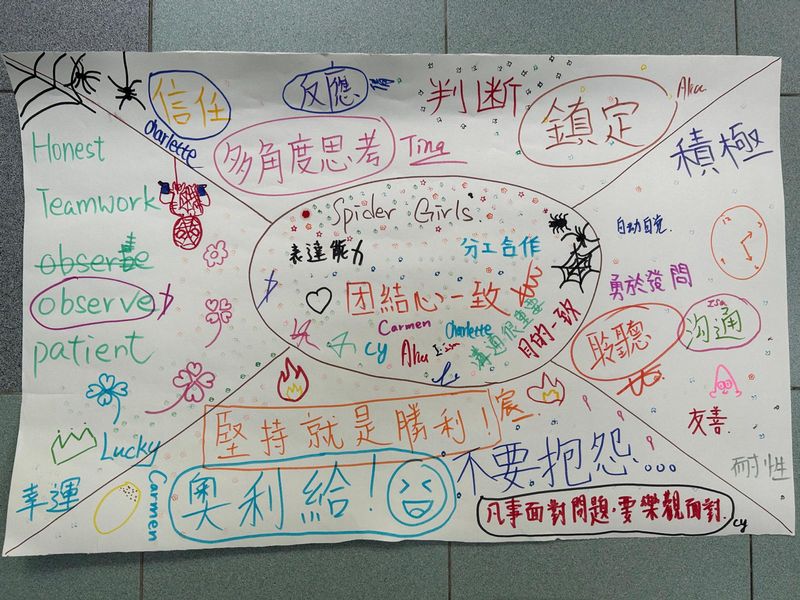 信任
反應
判断
鎮定
Alia
charlette
多角度思考
Tina
積極
Honest
Teamwork
observe
observe
patient
Spider Girls
表達能力
分工合作
团结心一致
目的一致
溝通很重要
Carmen
Charlotte
cy
Alia
自动自覚
勇於發問
聆聽
Isa
沟通
友善
耐性
堅持就是勝利！
Lucky
幸運
Carmen
奧利給！
不要抱怨...
凡事面對問題，要樂觀面對.
cy